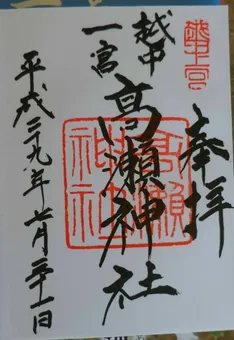 奉拝
越中
一宮
高瀬神社
平成二九年七月二十一日
高瀬
神社